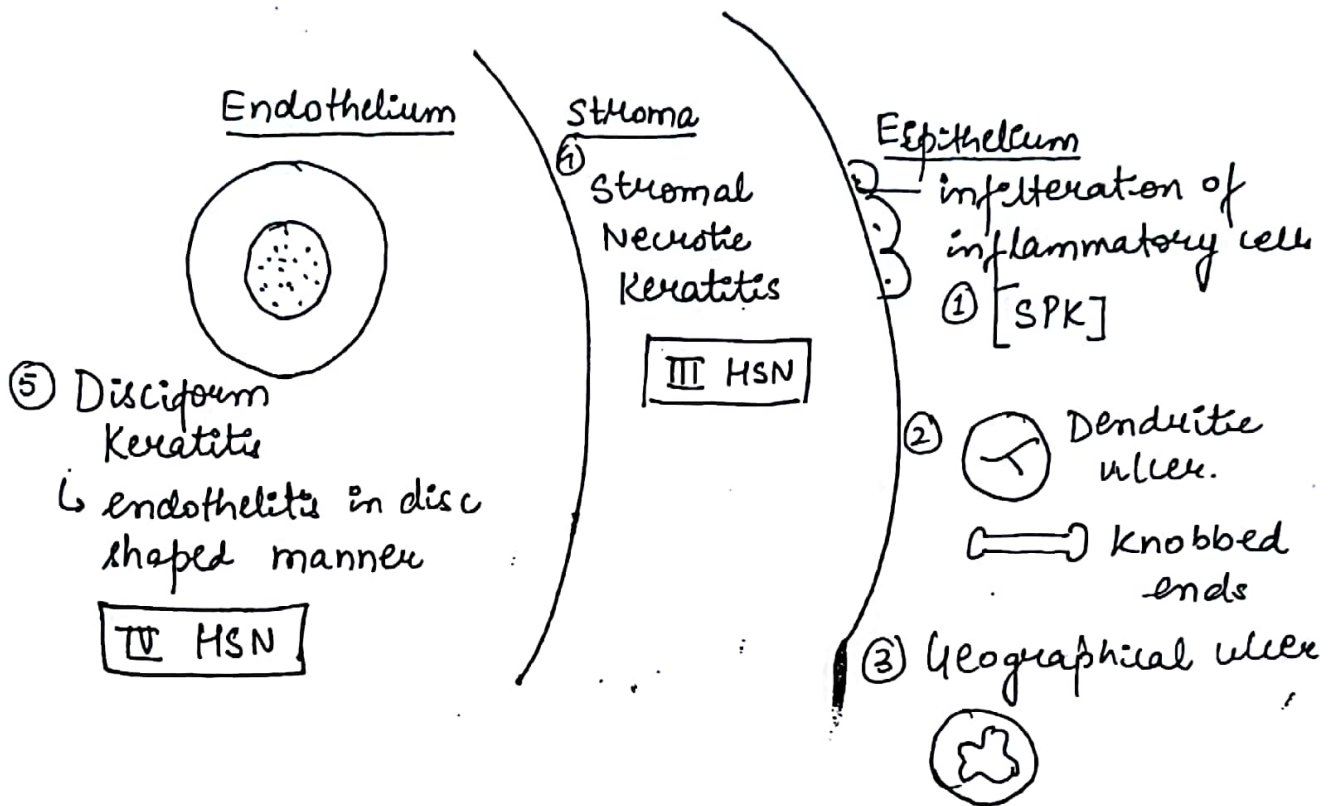 Endothelium
⑤ Disciform
Keratitis
↳ endothelitis in disc
shaped manner
IV HSN
Stroma
④
Stromal
Necrotic
Keratitis
III HSN
Epithelium
infilteration of
inflammatory cells
① [SPK]
② Dendritic
ulcer.
Knobbed
ends
③ Geographical ulcer